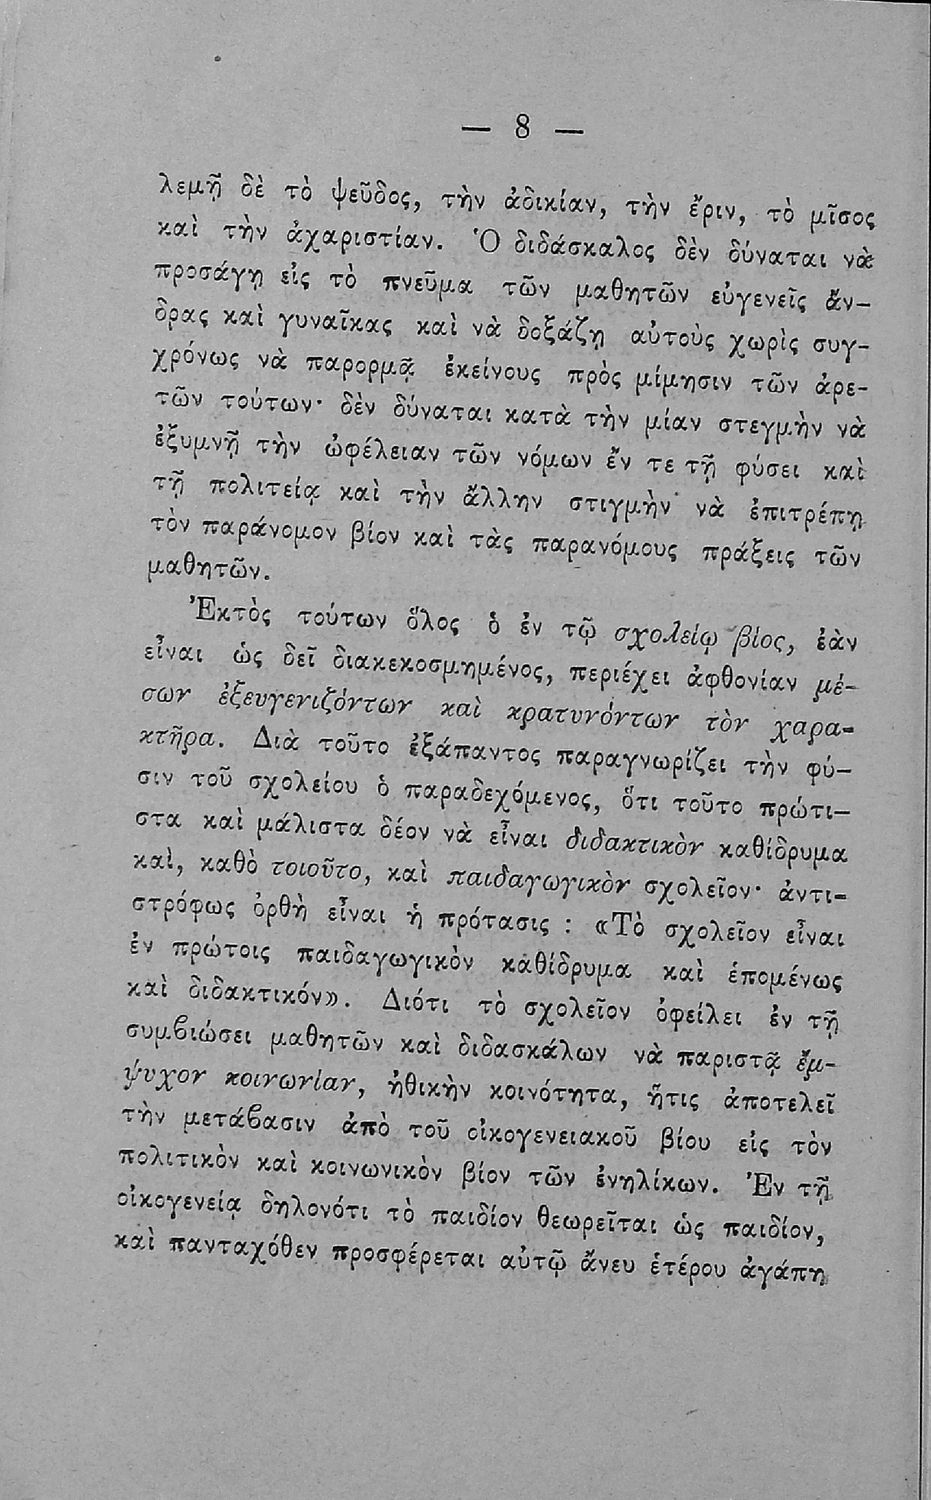 — 8 —
λεμῇ δὲ τὸ ψεῦδος, τὴν ἀδικίαν, τὴν ἔριν, τὸ μῖσος
καὶ τὴν ἀχαριστίαν. Ὁ διδάσκαλος δὲν δύναται νὰ
προσάγῃ εἰς τὸ πνεῦμα τῶν μαθητῶν εὐγενεῖς ἄν-
δρας καὶ γυναῖκας καὶ νὰ δοξάζῃ αὐτοὺς χωρὶς συγ-
χρόνως νὰ παρορμᾷ ἐκείνους πρὸς μίμησιν τῶν ἀρε-
τῶν τούτων· δὲν δύναται κατὰ τὴν μίαν στεγμὴν νὰ
ἐξυμνῇ τὴν ὠφέλειαν τῶν νόμων ἔν τε τῇ φύσει καὶ
τῇ πολιτείᾳ καὶ τὴν ἄλλην στιγμὴν νὰ ἐπιτρέπῃ
τὸν παράνομον βίον καὶ τὰς παρανόμους πράξεις τῶν
μαθητῶν.
Ἐκτὸς τούτων ὅλος ὁ ἐν τῷ σχολείῳ βίος, ἐὰν
εἶναι ὡς δεῖ διακεκοσμημένος, περιέχει ἀφθονίαν μέ-
σων ἐξευγενιζόντων καὶ κρατυνόντων τὸν χαρα-
κτῆρα. Διὰ τοῦτο ἐξάπαντος παραγνωρίζει τὴν φύ-
σιν τοῦ σχολείου ὁ παραδεχόμενος, ὅτι τοῦτο πρώτι-
στα καὶ μάλιστα δέον νὰ εἶναι διδακτικὸν καθίδρυμα
καὶ, καθὸ τοιοῦτο, καὶ παιδαγωγικὸν σχολεῖον· ἀντι-
στρόφως ὀρθὴ εἶναι ἡ πρότασις : «Τὸ σχολεῖον εἶναι
ἐν πρώτοις παιδαγωγικὸν καθίδρυμα καὶ ἑπομένως
καὶ διδακτικόν». Διότι τὸ σχολεῖον ὀφείλει ἐν τῇ
συμβιώσει μαθητῶν καὶ διδασκάλων νὰ παριστᾷ ἔμ-
ψυχον κοινωνίαν, ἠθικὴν κοινότητα, ἥτις ἀποτελεῖ
τὴν μετάβασιν ἀπὸ τοῦ οἰκογενειακοῦ βίου εἰς τὸν
πολιτικὸν καὶ κοινωνικὸν βίον τῶν ἐνηλίκων. Ἐν τῇ
οἰκογενείᾳ δηλονότι τὸ παιδίον θεωρεῖται ὡς παιδίον,
καὶ πανταχόθεν προσφέρεται αὐτῷ ἄνευ ἑτέρου ἀγάπη